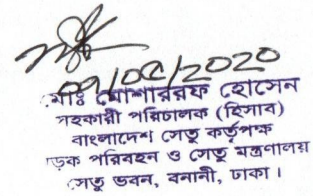 ০৭/০৫/2020
মোঃ মোশাররফ হোসেন
সহকারী পরিচালক (হিসাব)
বাংলাদেশ সেতু কর্তৃপক্ষ
সড়ক পরিবহন ও সেতু মন্ত্রণালয়
সেতু ভবন, বনানী, ঢাকা।